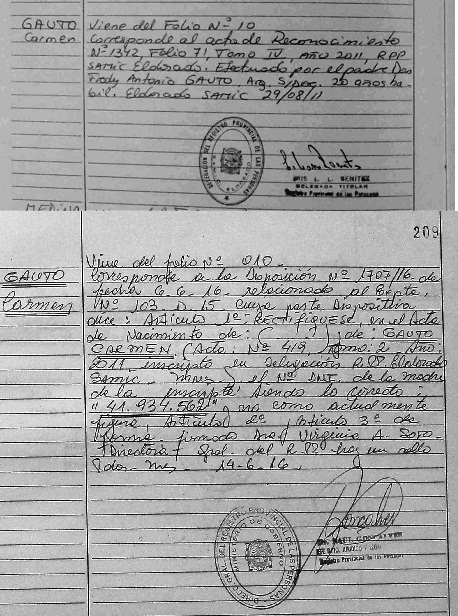 GAUTO
Carmen
Viene del Folio Nº 10
Corresponde al acta de Reconocimiento
Nº 1342, Folio 71 Tomo IV, AÑO 2011, RPP
SAMIC Eldorado. Efectuado por el padre Don
Fredy Antonio GAUTO, Arg. S/Doc. 20 años ha-
bil. Eldorado SAMIC 29/08/11
IRIS L. L. BENITEZ
DELEGADA TITULAR
Registro Provincial de las Personas
209
GAUTO
Carmen
Viene del folio Nº 010
Corresponde a la Disposición Nº 1707/16 de
fecha 6-6-16 relacionado al Expte.
Nº 103-D-15 cuya parte Dispositiva
dice: Artículo 1º: RECTIFIQUESE, en el Acta
de Nacimiento de: ( ) de: GAUTO
CARMEN (Acta: Nº 419, Tomo: 2 Año:
2011 inscripto en Delegación R.P.P. Eldorado
Samic el Nº DNI. de la madre
de la inscripta siendo lo correcto:
"41.934.562" y no como actualmente
figura Artículo 2º, Artículo 3º de
forma firmado Dra. Virginia A.
Directora Gral del R.P.P. hay un sello
14-6-16.
Registro Provincial de las Personas